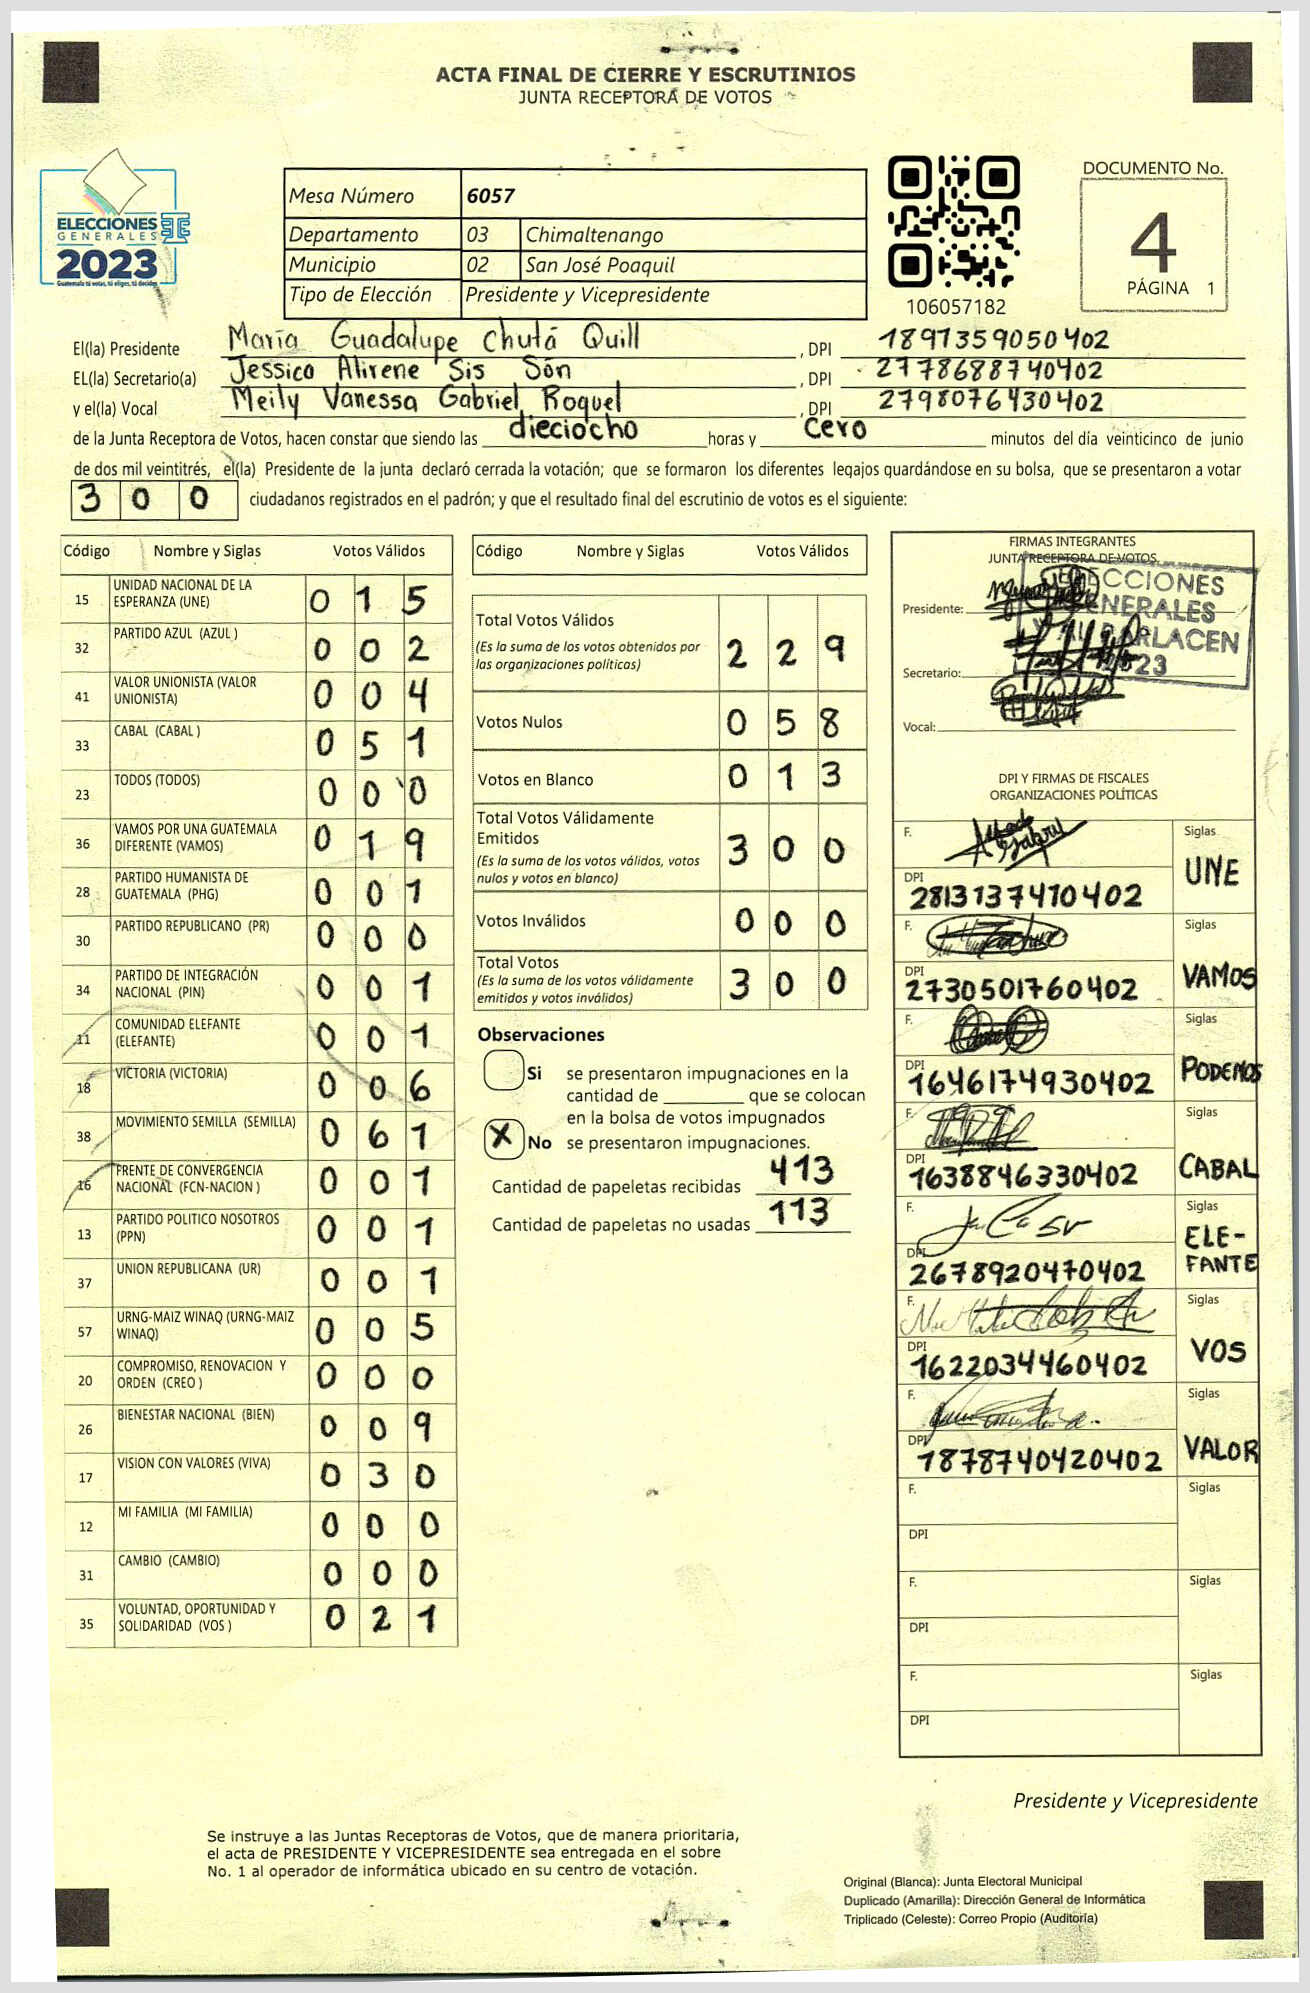 ACTA FINAL DE CIERRE Y ESCRUTINIOS
JUNTA RECEPTORA DE VOTOS
ELECCIONES
GENERALES
2023
Guatemala tú votas, tú eliges, tú decides
Mesa Número 6057
Departamento 03 Chimaltenango
Municipio 02 San José Poaquil
Tipo de Elección Presidente y Vicepresidente
106057182
DOCUMENTO No.
4
PÁGINA 1
El(la) Presidente María Guadalupe Chutá Quill , DPI 1897359050402
EL(la) Secretario(a) Jessica Alirene Sis Són , DPI 2778688740402
y el(la) Vocal Meily Vanessa Gabriel Roquel , DPI 2798076430402
de la Junta Receptora de Votos, hacen constar que siendo las dieciocho horas y Cero minutos del día veinticinco de junio
de dos mil veintitrés, el(la) Presidente de la junta declaró cerrada la votación; que se formaron los diferentes legajos guardándose en su bolsa, que se presentaron a votar
300 ciudadanos registrados en el padrón; y que el resultado final del escrutinio de votos es el siguiente:
Código Nombre y Siglas Votos Válidos
15 UNIDAD NACIONAL DE LA ESPERANZA (UNE) 015
32 PARTIDO AZUL (AZUL ) 002
41 VALOR UNIONISTA (VALOR UNIONISTA) 004
33 CABAL (CABAL ) 051
23 TODOS (TODOS) 000
36 VAMOS POR UNA GUATEMALA DIFERENTE (VAMOS) 019
28 PARTIDO HUMANISTA DE GUATEMALA (PHG) 001
30 PARTIDO REPUBLICANO (PR) 000
34 PARTIDO DE INTEGRACIÓN NACIONAL (PIN) 001
11 COMUNIDAD ELEFANTE (ELEFANTE) 001
18 VICTORIA (VICTORIA) 006
38 MOVIMIENTO SEMILLA (SEMILLA) 061
16 FRENTE DE CONVERGENCIA NACIONAL (FCN-NACION ) 001
13 PARTIDO POLITICO NOSOTROS (PPN) 001
37 UNION REPUBLICANA (UR) 001
57 URNG-MAIZ WINAQ (URNG-MAIZ WINAQ) 005
20 COMPROMISO, RENOVACION Y ORDEN (CREO ) 000
26 BIENESTAR NACIONAL (BIEN) 009
17 VISION CON VALORES (VIVA) 030
12 MI FAMILIA (MI FAMILIA) 000
31 CAMBIO (CAMBIO) 000
35 VOLUNTAD, OPORTUNIDAD Y SOLIDARIDAD (VOS ) 021
Código Nombre y Siglas Votos Válidos
Total Votos Válidos 229
(Es la suma de los votos obtenidos por
las organizaciones políticas)
Votos Nulos 058
Votos en Blanco 013
Total Votos Válidamente
Emitidos 300
(Es la suma de los votos válidos, votos
nulos y votos en blanco)
Votos Inválidos 000
Total Votos 300
(Es la suma de los votos válidamente
emitidos y votos inválidos)
Observaciones
Si se presentaron impugnaciones en la
cantidad de ________ que se colocan
en la bolsa de votos impugnados
X No se presentaron impugnaciones.
Cantidad de papeletas recibidas 413
Cantidad de papeletas no usadas 113
FIRMAS INTEGRANTES
JUNTA RECEPTORA DE VOTOS
ELECCIONES
GENERALES
Y AL PARLACEN
2023
Presidente:
Secretario:
Vocal:
DPI Y FIRMAS DE FISCALES
ORGANIZACIONES POLÍTICAS
F. Siglas
DPI 2813137410402 UNE
F. Siglas
DPI 2730501760402 VAMOS
F. Siglas
DPI 1646174930402 PODEMOS
F. Siglas
DPI 1638846330402 CABAL
F. Siglas
DPI 2678920470402 ELE-
FANTE
F. Siglas
DPI 1622034460402 VOS
F. Siglas
DPI 1878740420402 VALOR
F. Siglas
DPI
F. Siglas
DPI
F. Siglas
DPI
Presidente y Vicepresidente
Se instruye a las Juntas Receptoras de Votos, que de manera prioritaria,
el acta de PRESIDENTE Y VICEPRESIDENTE sea entregada en el sobre
No. 1 al operador de informática ubicado en su centro de votación.
Original (Blanca): Junta Electoral Municipal
Duplicado (Amarilla): Dirección General de Informática
Triplicado (Celeste): Correo Propio (Auditoría)